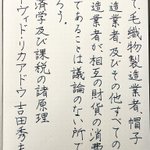 て、毛織物製造業者、帽子
造業者及びその他すべての
造業者が、相互の財貨の消費
であることは議論のない所で
ろう。
済学及び課税の諸原理
ヴィド・リカアドウ 吉田秀